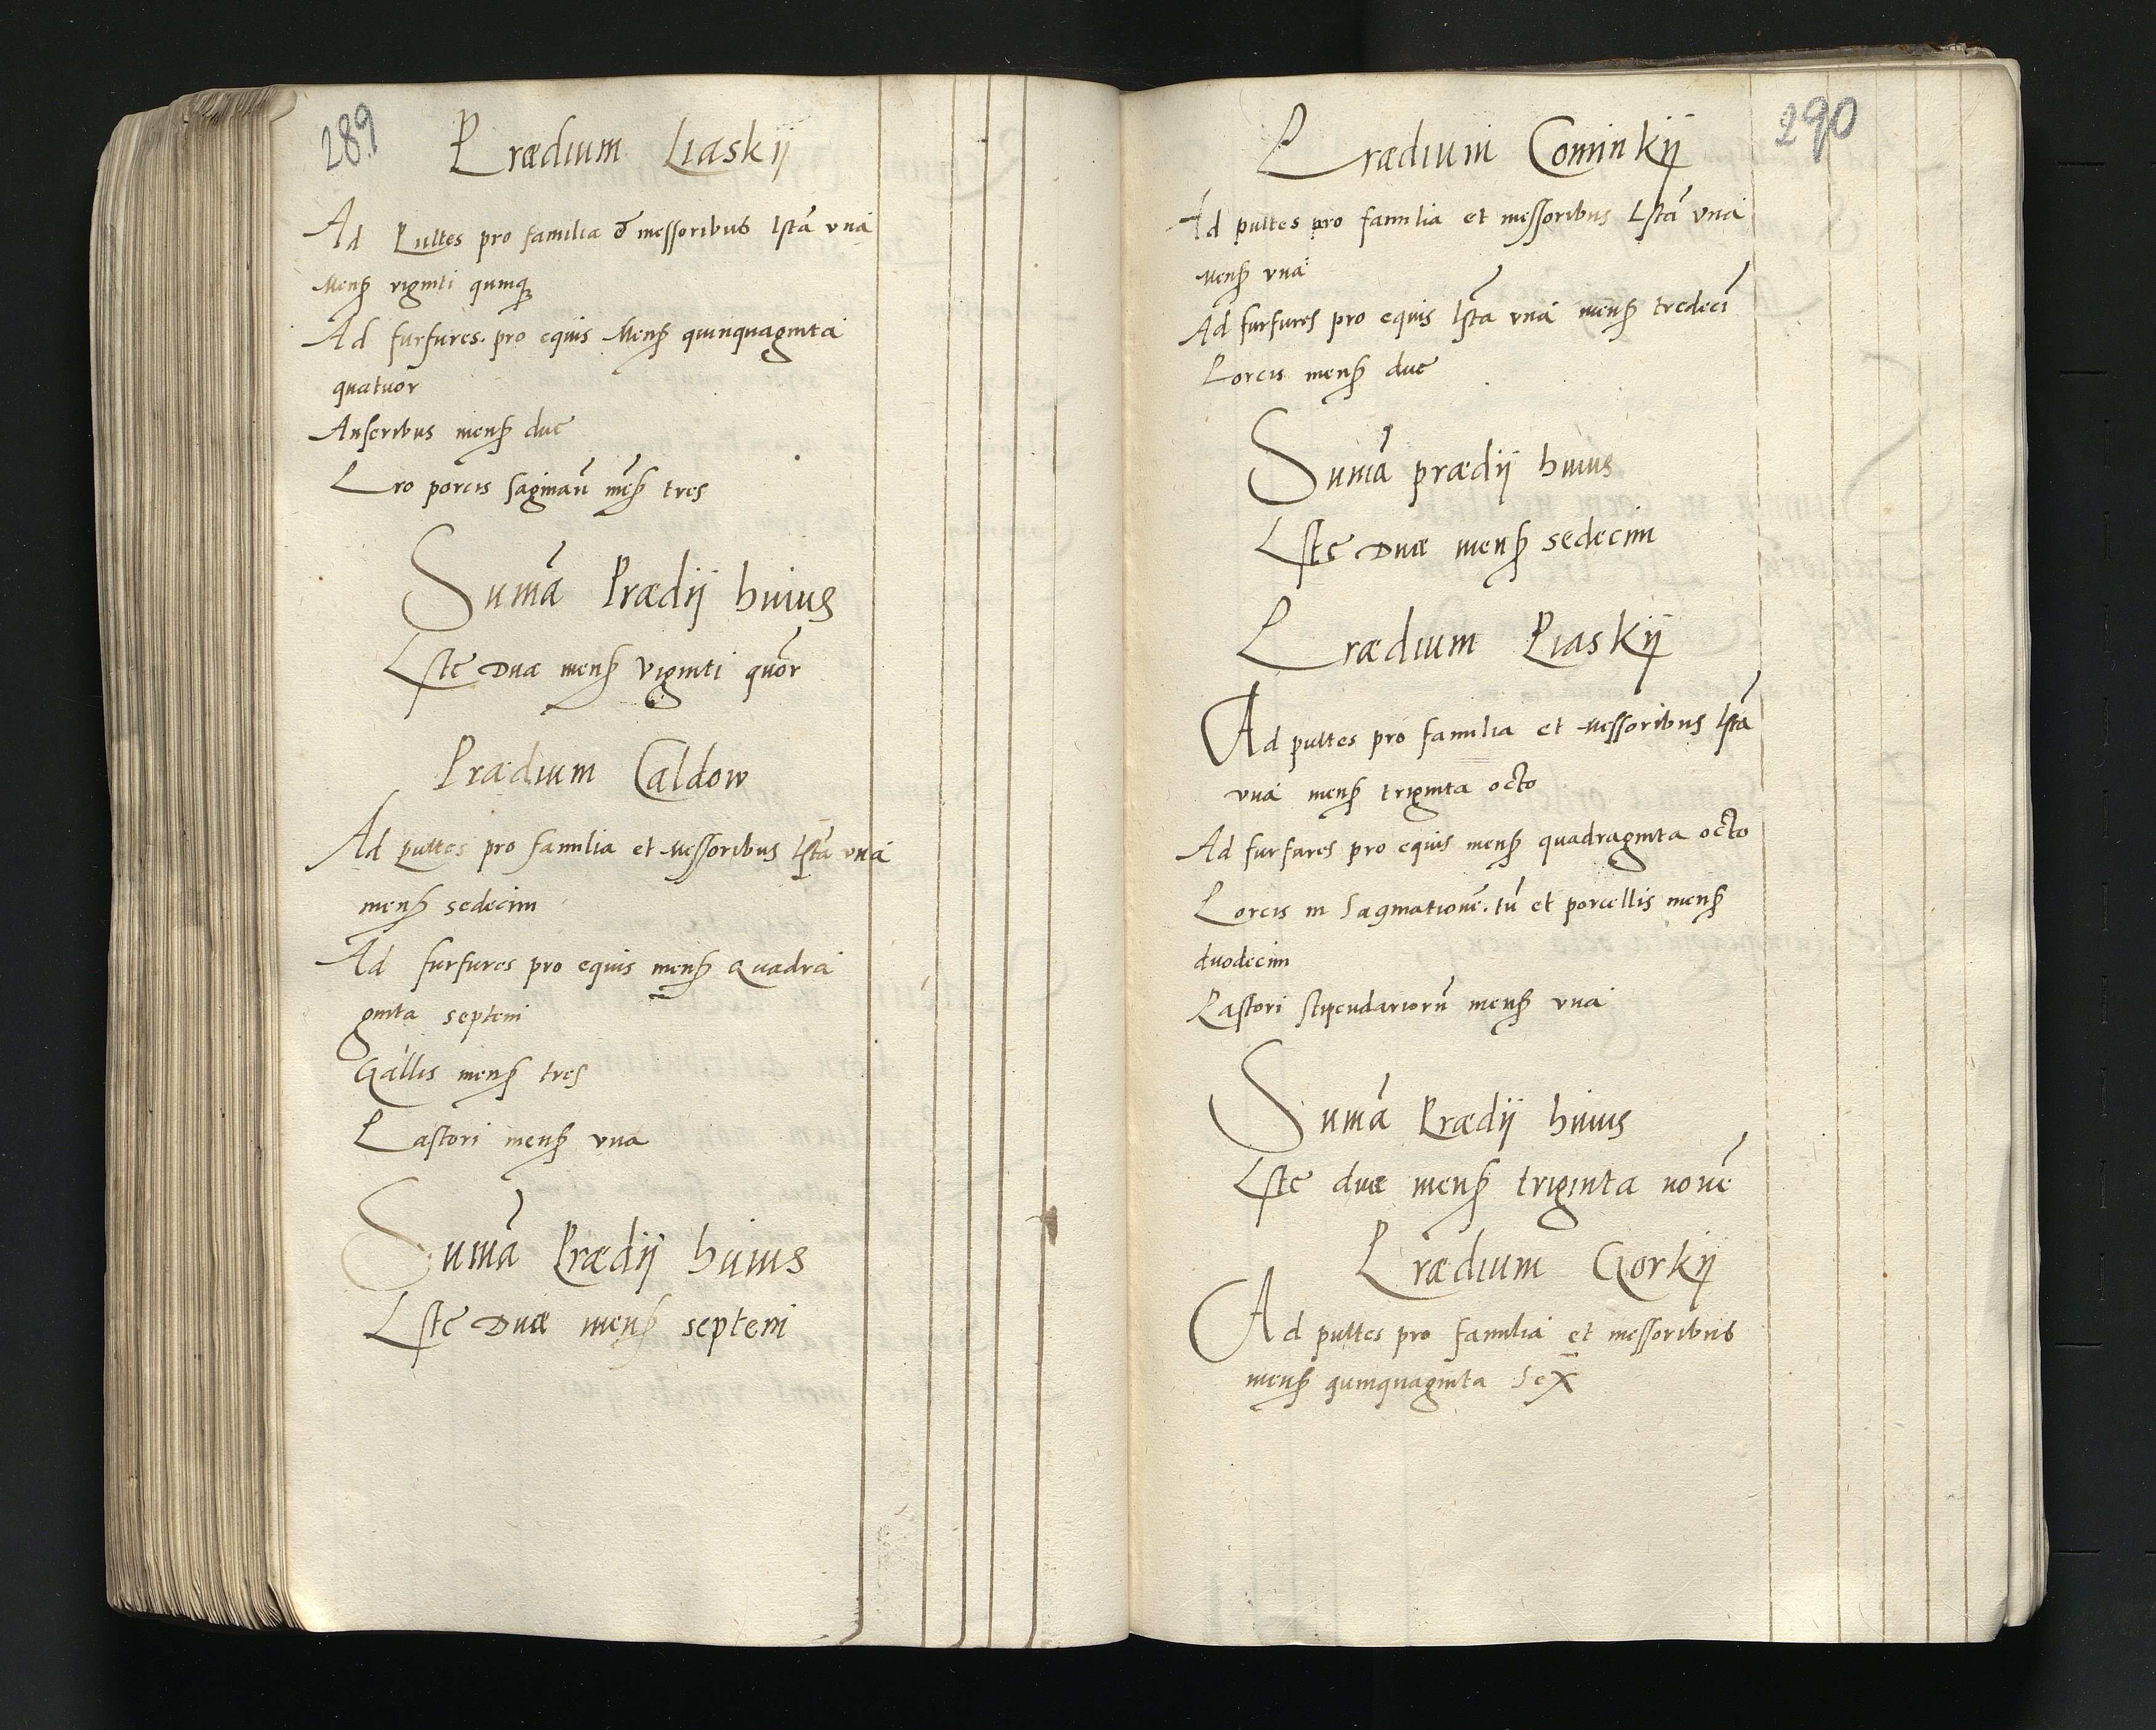 289
Prædium Liaskij
Ad Pultes pro familia & messoribus Lstā vnā
Mens̨ viginti quinq̨
Ad furfures pro equis Mens̨ quinquaginta
quatuor
Anseribus mens̨ due
Pro porcis saginan̄ mēs̨ tres
Sumā Prædij huius
Lste Duæ mens̨ Viginti quōr
Prædium Caldow
Ad pultes pro familia et Messoribus Lstā vnā
mens̨ sedecim
Ad furfures pro equis mens̨ Quadra
ginta septem
Gallis mens̨ tres
Pastori mens̨ vna
Sumā Prædij huius
Lste Duæ mens̨ septem
290
Prædium Cominkij
Ad pultes pro familia et messoribus Lstā vnā
Mens̨ vnā
Ad furfures pro equis Lstā vnā mens̨ tredecī
Porcis mens̨ due
Sumā prædij huius
Lste Duæ mens̨ sedecim
Prædium Piaskij
Ad pultes pro familia et Messoribus Lstā
vnā mens̨ triginta octo
Ad furfares pro equis mens̨ quadraginta octo
Porcis in Saginationē tū et porcellis mens̨
duodecim
Pastori stipendariorū mens̨ vnā
Sumā Prædij huius
Lste duæ mens̨ triginta novē
Prædium Gorkij
Ad pultes pro familia et messoribus
mens̨ quinquaginta Sex